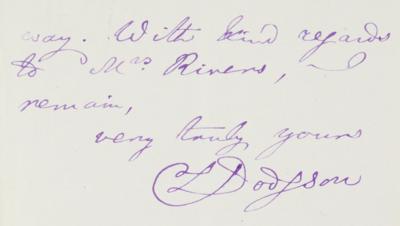 way. With kind regards
to Mrs Rivers, I
remain,
very truly yours
CLDodgson